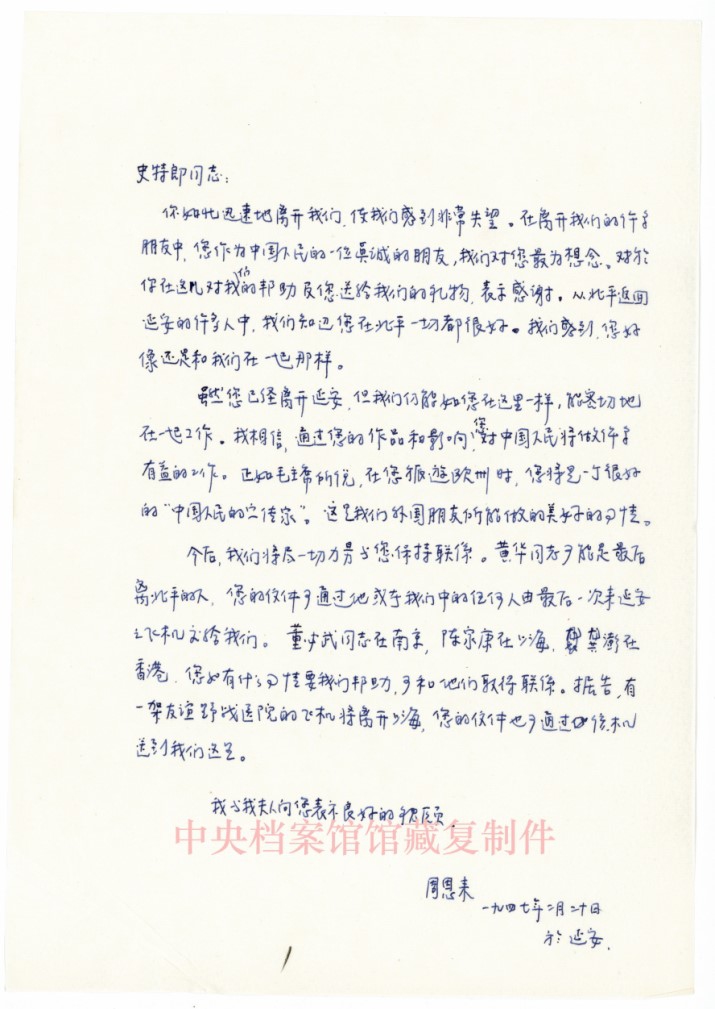 史特郎同志：
你如此迅速地离开我们，使我们感到非常失望。在离开我们的许多
朋友中，您作为中国人民的一位真诚的朋友，我们对您最为想念。对於
你在这儿对我们的帮助及您送给我们的礼物，表示感谢。从北平返回
延安的许多人中，我们知道您在北平一切都很好。我们感到，您好
像还是和我们在一起那样。
虽然您已经离开延安，但我们仍能如您在这里一样，能密切地
在一起工作。我相信，通过您的作品和影响，您对中国人民将做许多
有益的工作。正如毛主席所说，在您旅遊欧州时，您将是一个很好
的“中国人民的宣传家”。这是我们外国朋友所能做的美好的事情。
今后，我们将尽一切力量与您保持联係。黄华同志可能是最后
离北平的人，您的信件可通过他或在我们中的任何人由最后一次来延安
之飞机交给我们。董必武同志在南京，陈家康在上海，龚澎在
香港，您如有什么事情要我们帮助，可和他们取得联係。据告，有
一架友谊野战医院的飞机将离开上海，您的信件也可通过该机
送到我们这里。
我与我夫人向您表示良好的祝愿，
中央档案馆馆藏复制件
周恩来
一九四七年二月二十日
於延安.